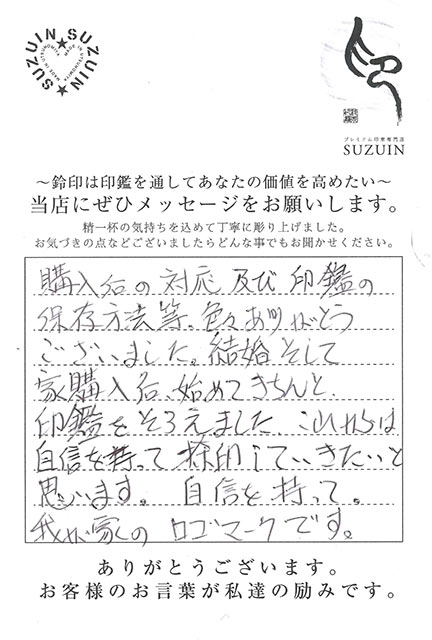 SUZUIN★SUZUIN★
プレミアム印章専門店
SUZUIN
～鈴印は印鑑を通してあなたの価値を高めたい～
当店にぜひメッセージをお願いします。
精一杯の気持ちを込めて丁寧に彫り上げました。
お気づきの点などございましたらどんな事でもお聞かせください。
購入后の対応及び印鑑の
保存方法等、色々ありがとう
ございました。結婚そして
家購入后、始めてきちんと
印鑑をそろえました これからは
自信を持って捺印していきたいと
思います。自信を持って。
我が家のロゴマークです。
ありがとうございます。
お客様のお言葉が私達の励みです。